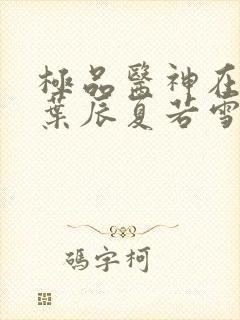 極品醫神在
葉辰夏若雪
碼字柯